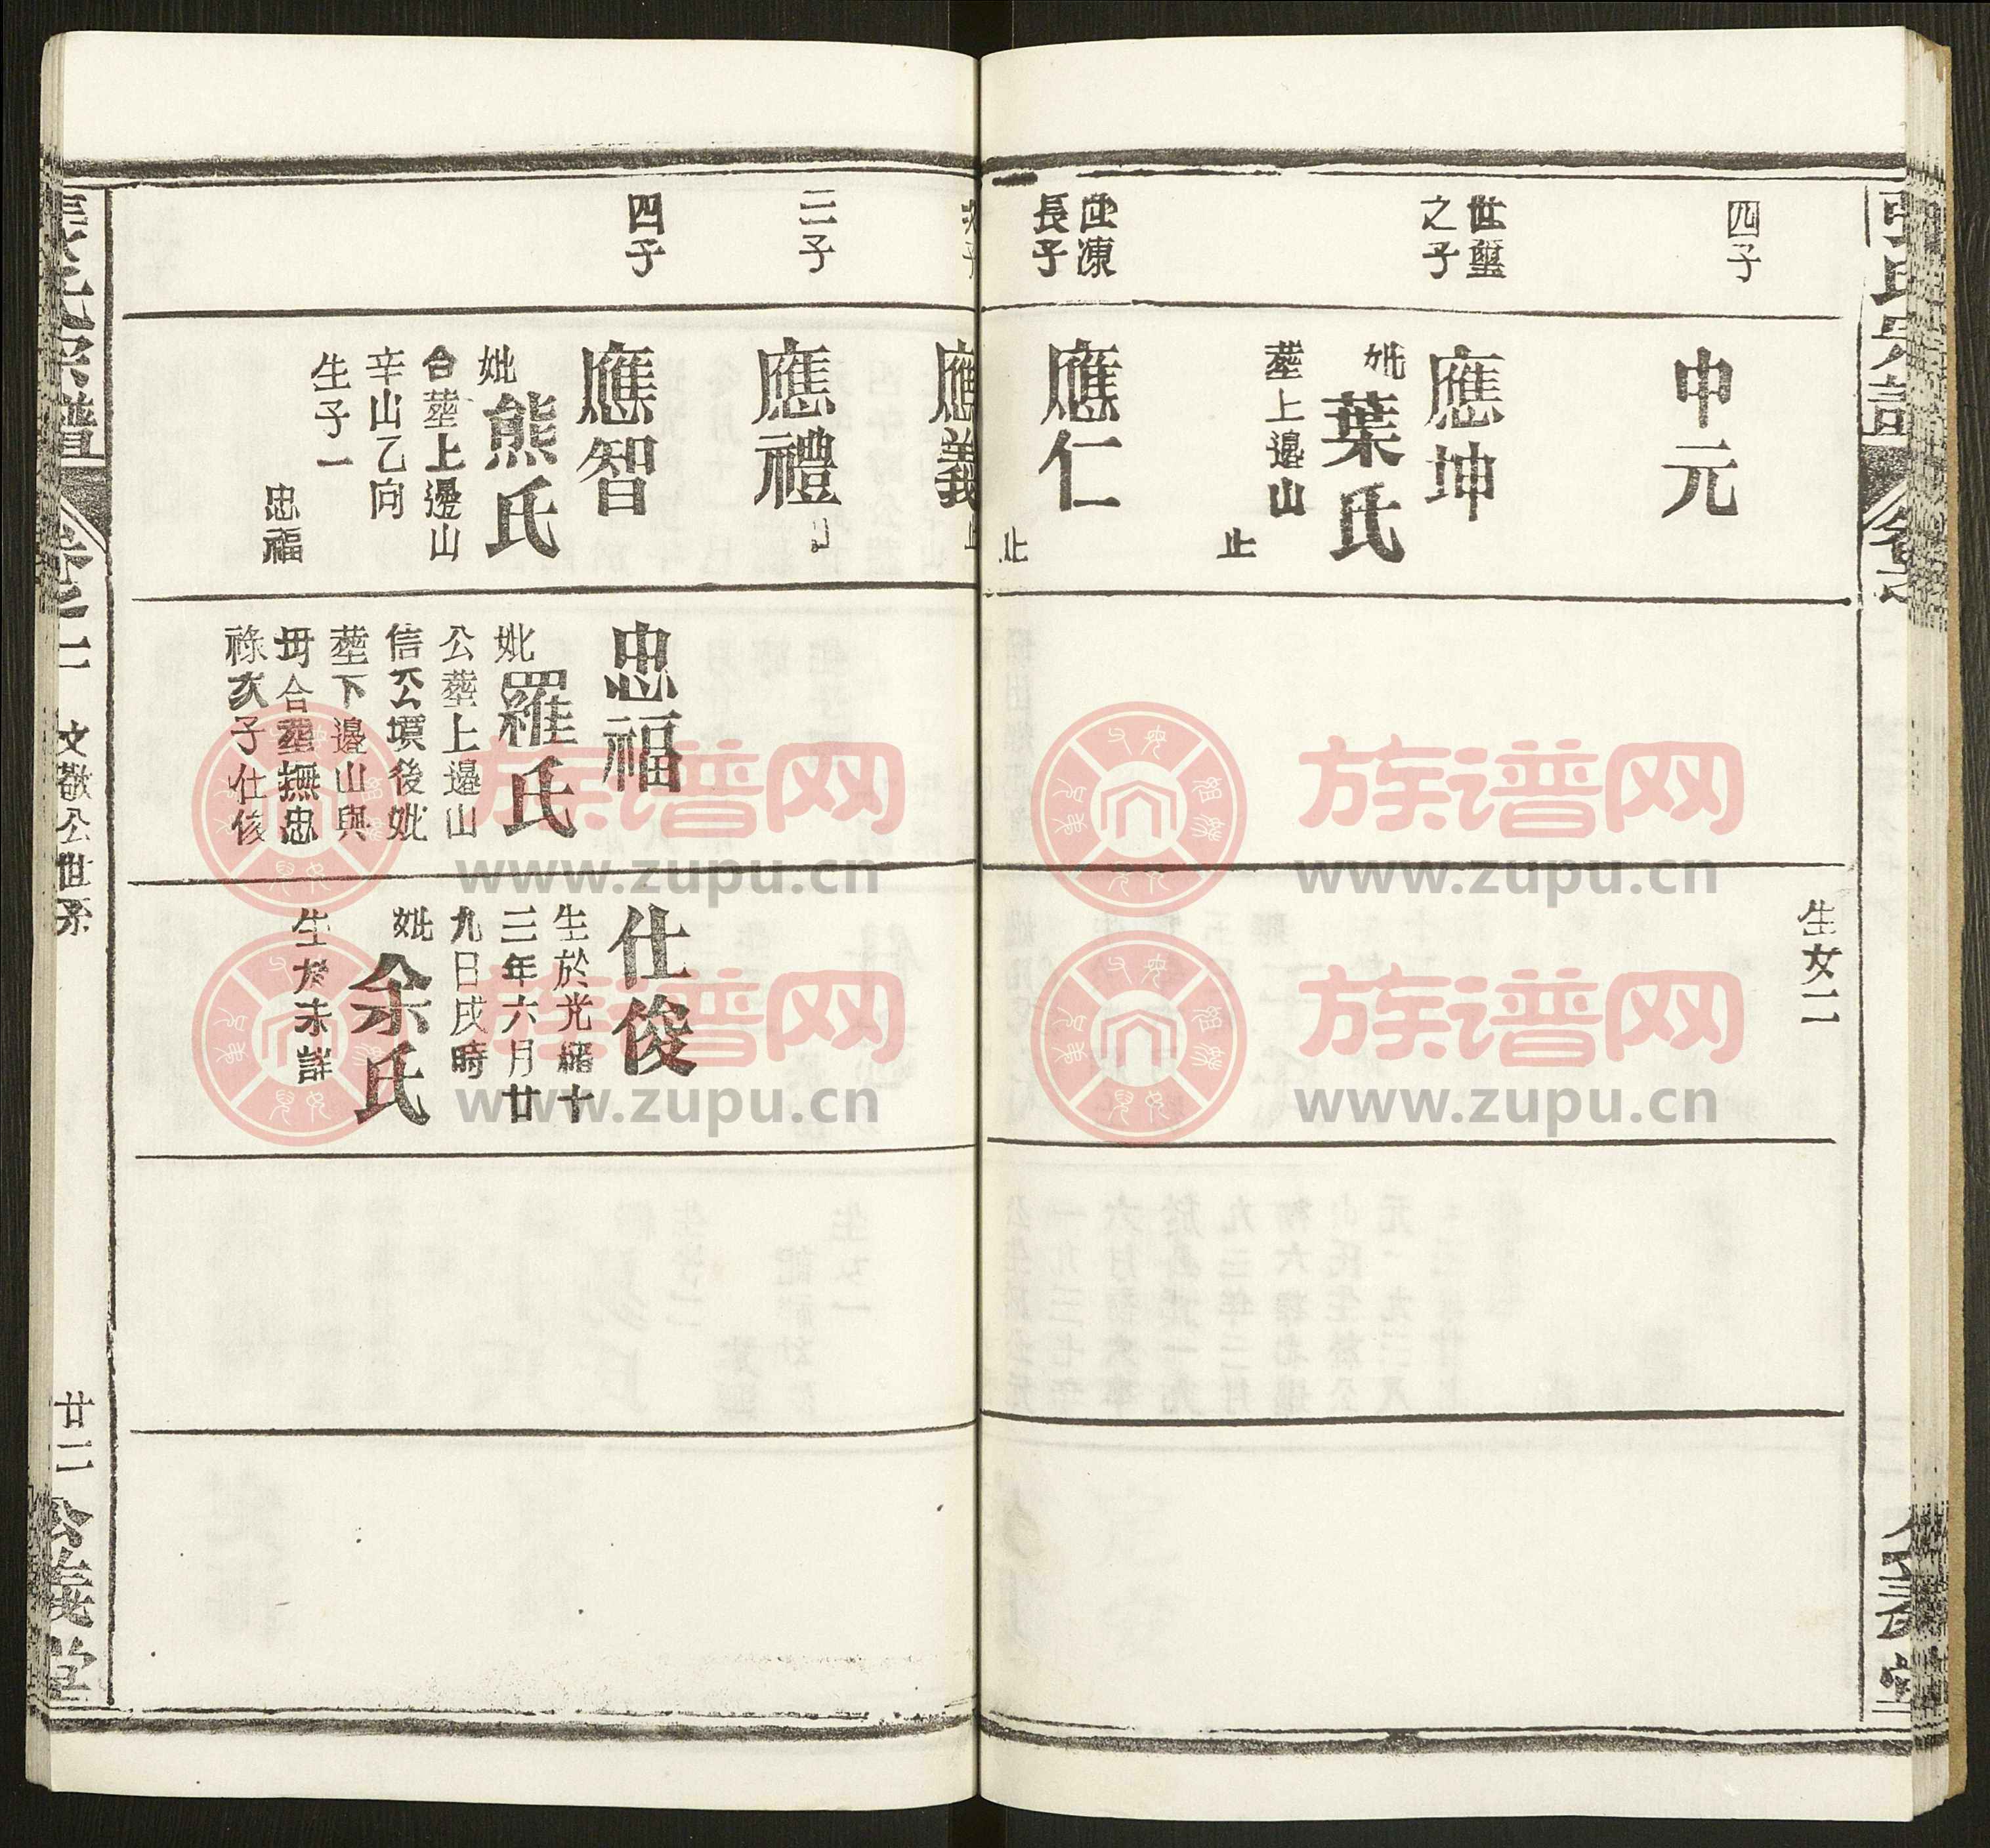 四子
申元
世璽
之子
應坤
妣葉氏
塟上邉山
止
世凍
長子
應仁
止
生女二
應義
三子
應禮
四子
應智
妣熊氏
合塟上邉山
辛山乙向
生子一
忠福
忠福
妣羅氏
公塟上邉山
信公墳後妣
塟下邉山與
毋合塟撫忠
祿次子仕俊
仕俊
生於光緒十
三年六月廿
九日戌時
妣余氏
生於未詳
張氏宗譜
卷之一
文敬公世系
廿二
公義堂
族谱网
www.zupu.cn
族谱网
www.zupu.cn
族谱网
www.zupu.cn
族谱网
www.zupu.cn